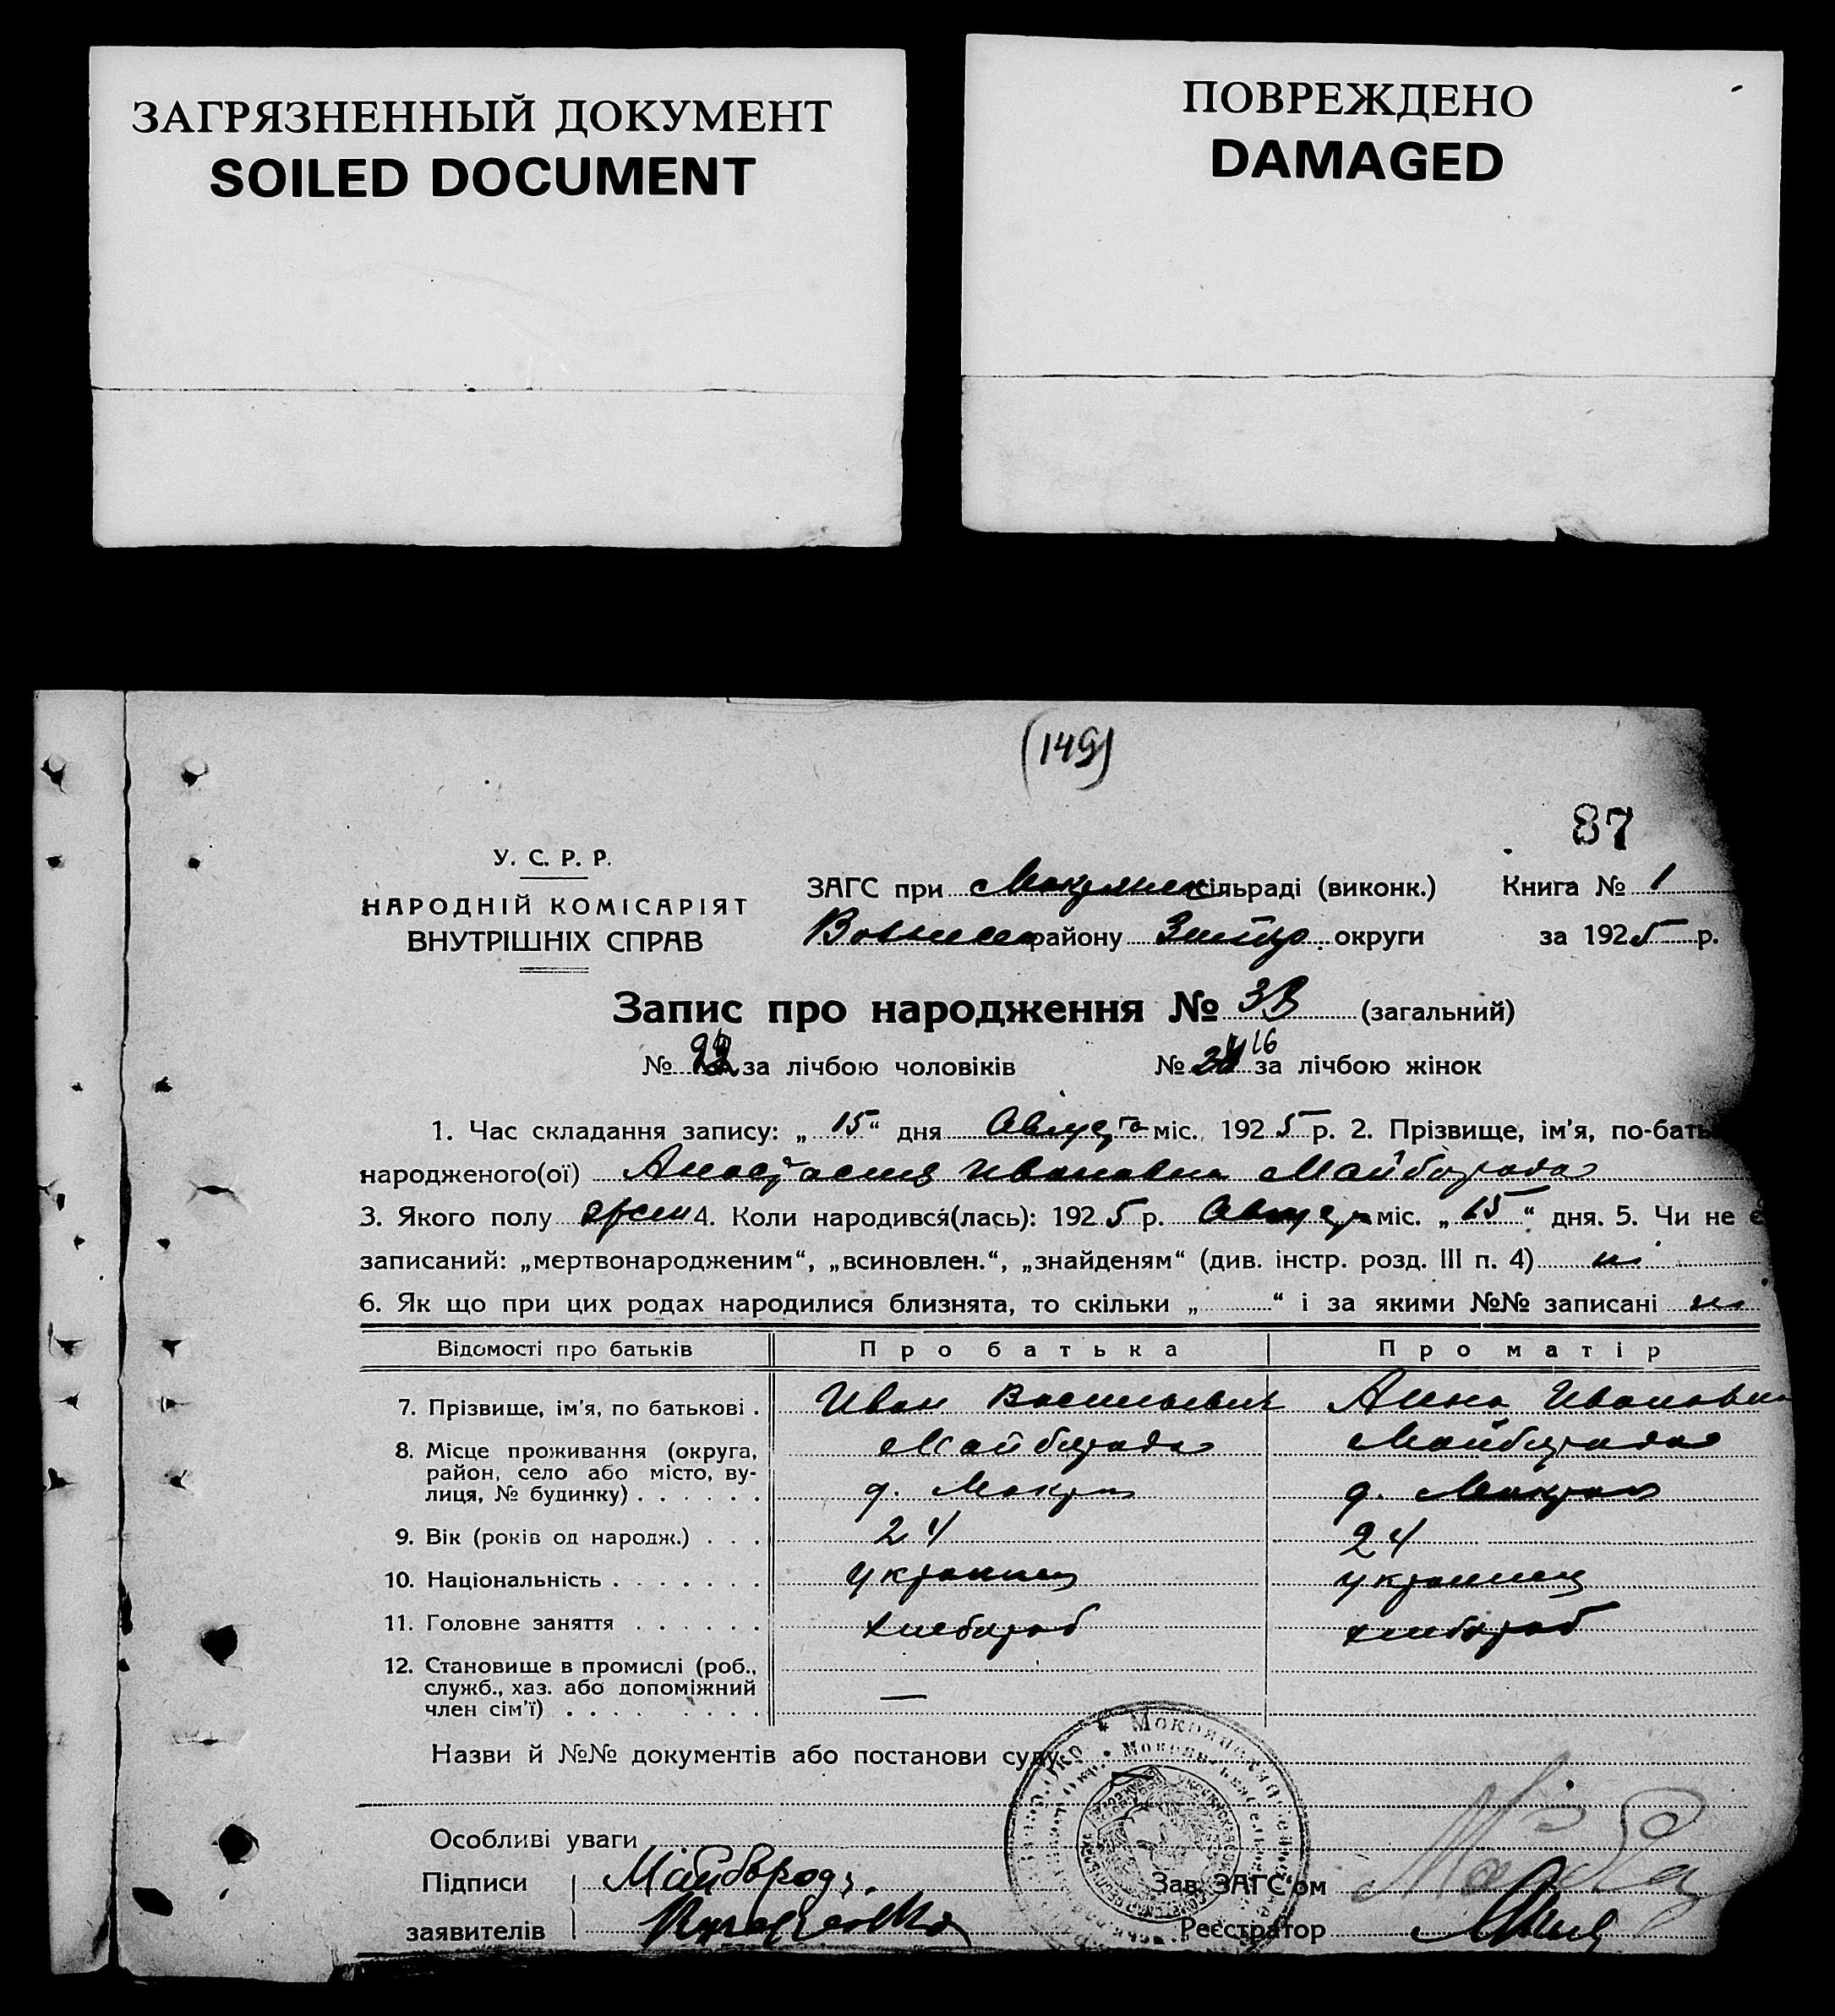 ЗАГРЯЗНЕННЫЙ ДОКУМЕНТ
SOILED DOCUMENT
ПОВРЕЖДЕНО
DAMAGED
(149)
87
У. С. Р. Р.
НАРОДНІЙ КОМІСАРІЯТ
ВНУТРІШНІХ СПРАВ
ЗАГС при Мокрянск сільраді (виконк.) Книга № 1
району округи за 1925 р.
Запис про народження № (загальний)
№ за лічбою чоловіків № 16 за лічбою жінок
1. Час складання запису: „15“ дня Август міс. 1925 р. 2. Прізвище, ім'я, по-бать
народженого(ої) Анастасия Ивановна Майборода
3. Якого полу жен 4. Коли народився(лась): 1925 р. Август міс. „15“ дня. 5. Чи не є
записаний: „мертвонародженим“, „всиновлен.“, „знайденям“ (див. інстр. розд. III п. 4) ні
6. Як що при цих родах народилися близнята, то скільки „ “ і за якими №№ записані ні
Відомості про батьків Про батька Про матір
7. Прізвище, ім'я, по батькові . Иван Васильевич Анна Ивановна
8. Місце проживання (округа, Майборода Майборода
район, село або місто, ву-
лиця, № будинку) . . . . . . д. Мокра д. Мокрая
9. Вік (років од народж.) . . . 24 24
10. Національність . . . . . . . украинец украинец
11. Головне заняття . . . . . . хлебороб хлебороб
12. Становище в промислі (роб.,
служб., хаз. або допоміжний
член сім'ї) . . . . . . . . —
Назви й №№ документів або постанови суду
Особливі уваги
Підписи Майборода
Зав. ЗАГС'ом
заявителів
Реєстратор